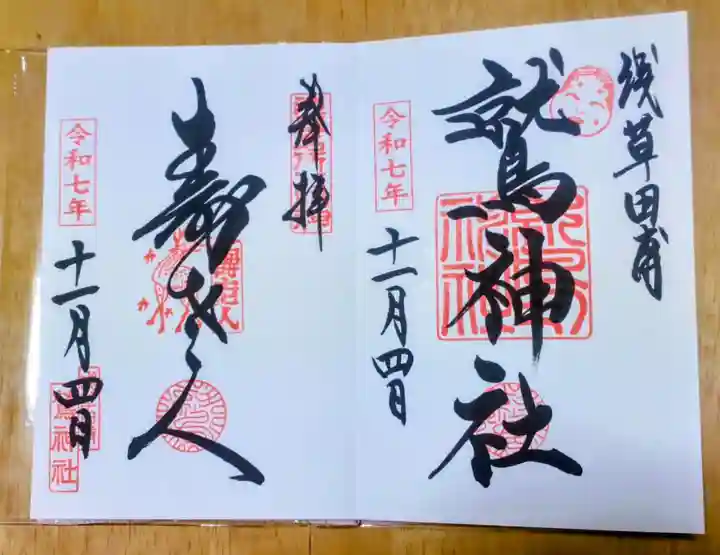 浅草田甫
鷲神社
令和七年
十一月四日
奉拝
寿老人
令和七年
十一月四日
鷲神社